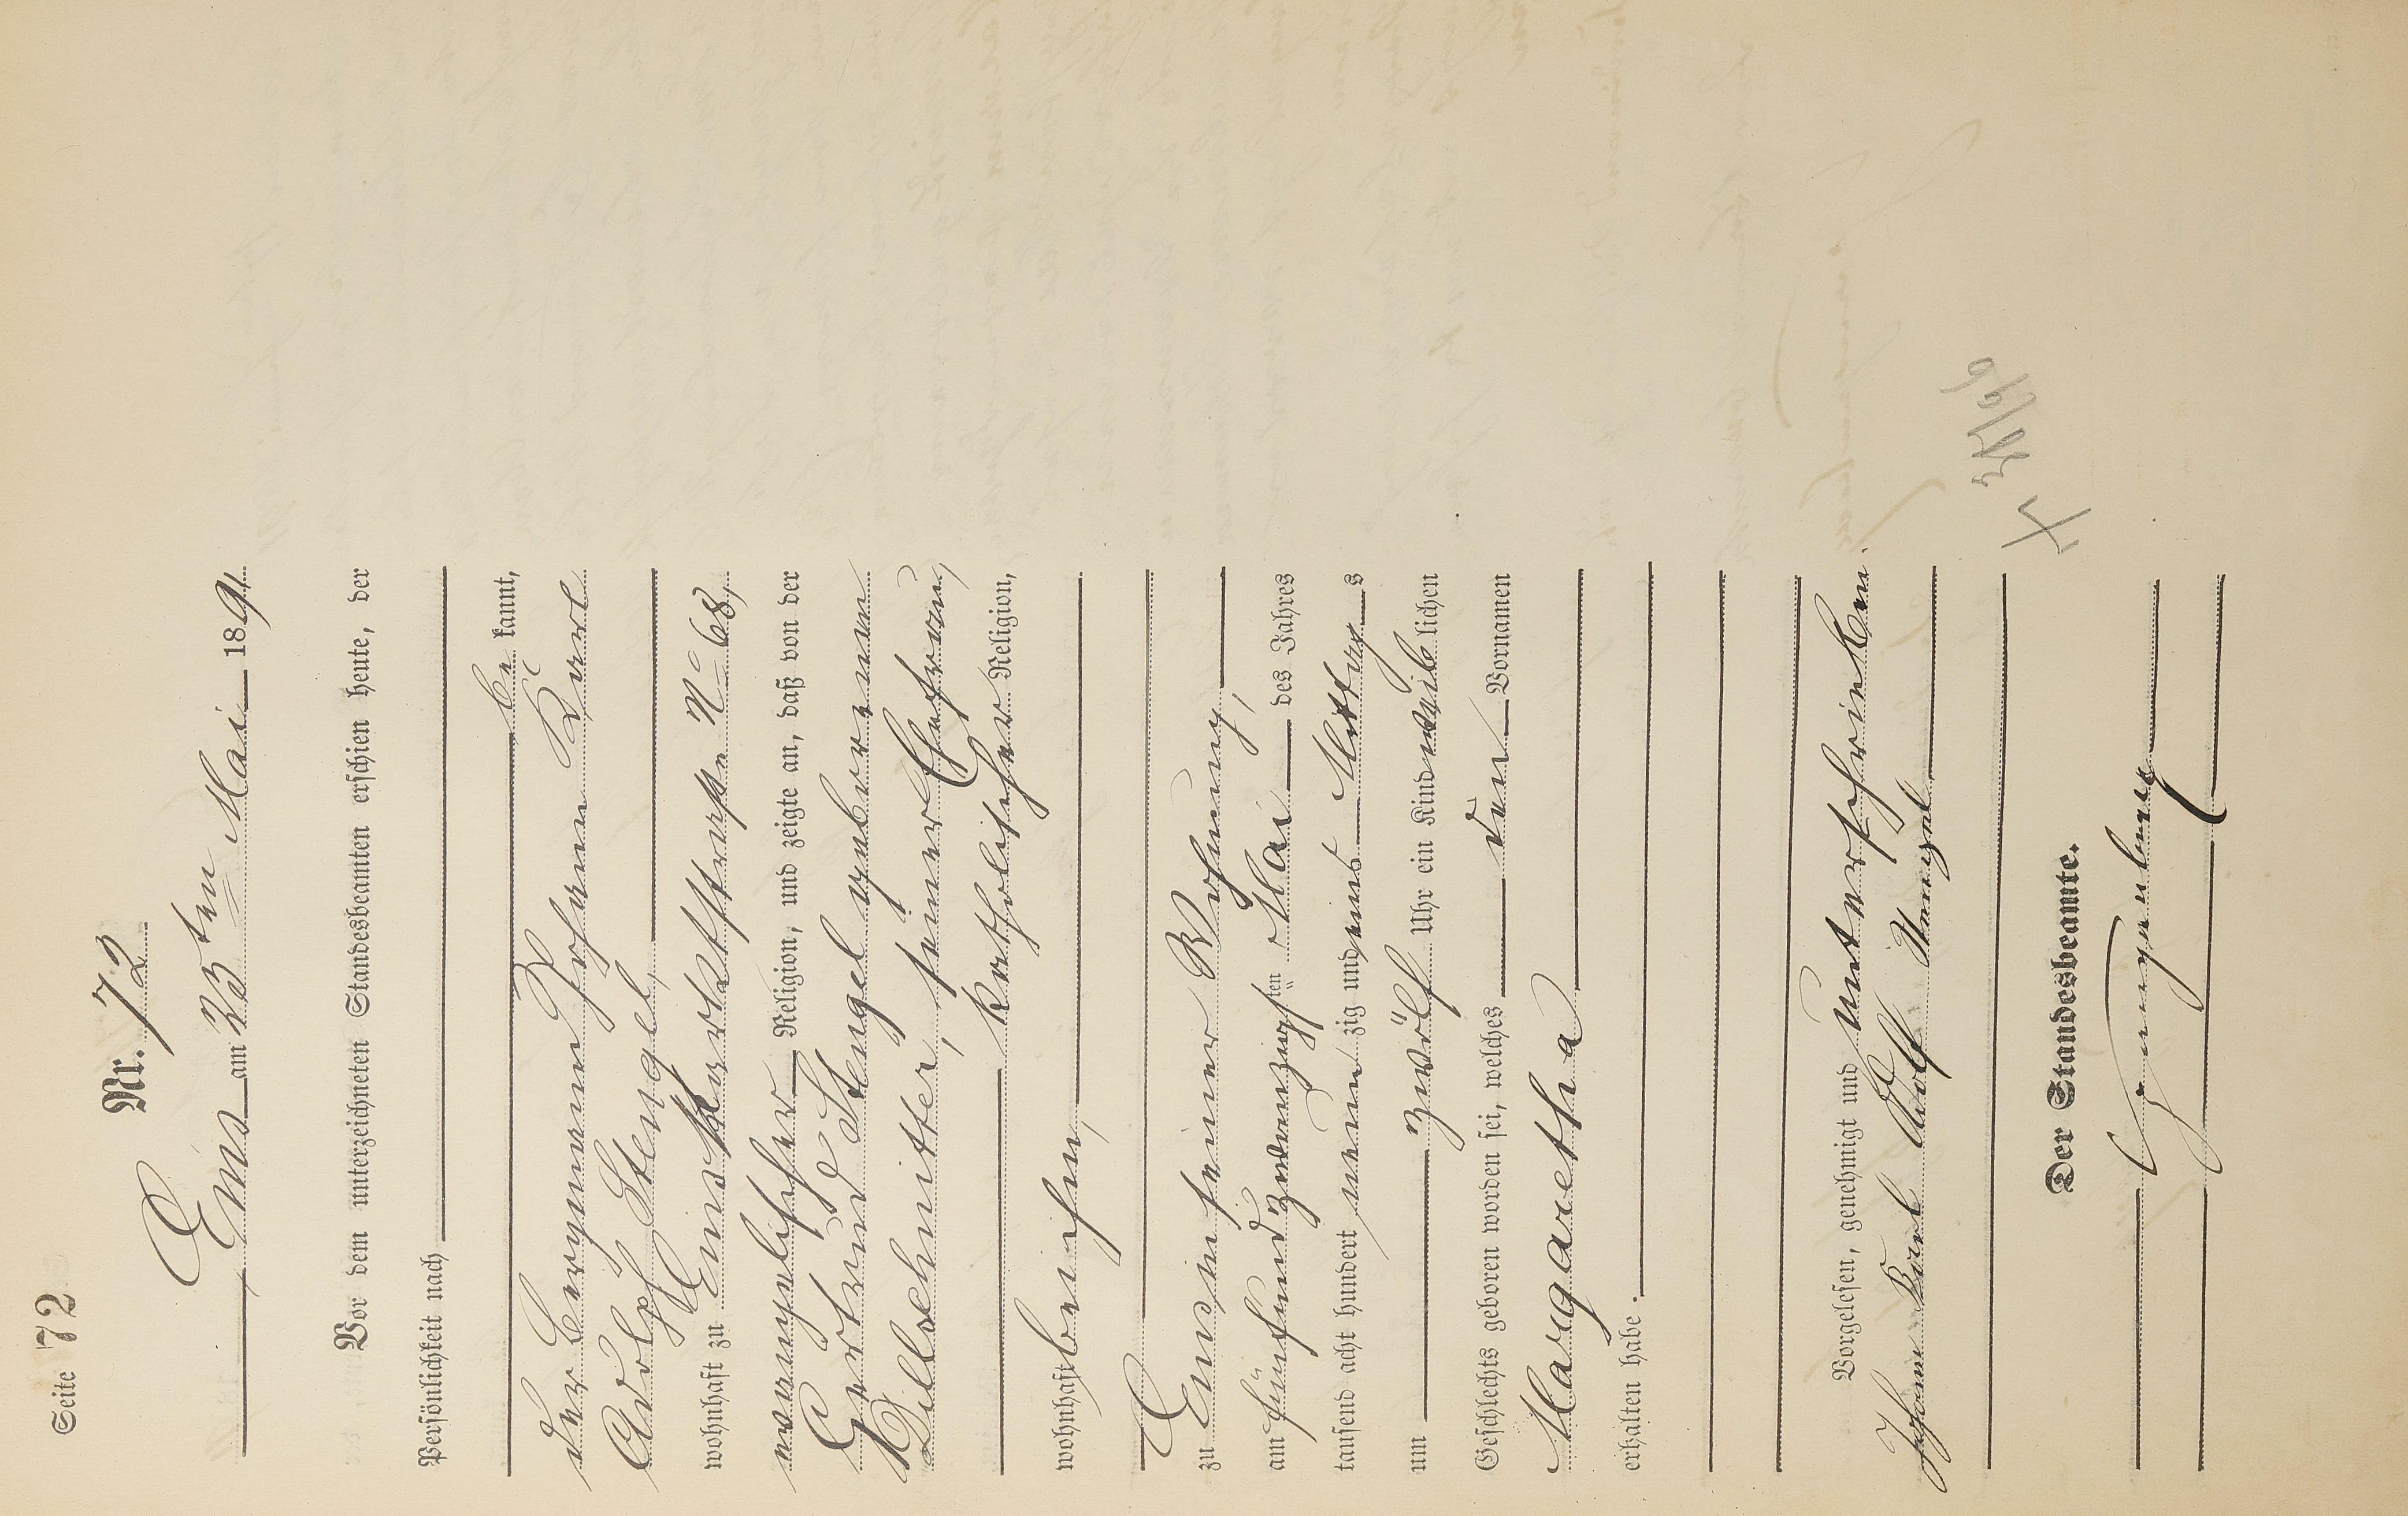 Seite 72
Nr. 72
Ems am 23ten Mai 1891.
Vor dem unterzeichneten Standesbeamten erschien heute, der
Persönlichkeit nach
be kannt,
der Bergmann Johann Karl
Adolf Stengel,
wohnhaft zu Ems Marktstraße No 68,
evangelischer Religion, und zeigte an, daß von der
Gertrud Stengel geborenen
Dillschnitter, seiner Ehefrau,
katholischer Religion,
wohnhaft bei ihm,
zu Ems in seiner Wohnung,
am fünfundzwanzigsten Mai des Jahres
tausend acht hundert neun zig und eins Mittags
um zwölf Uhr ein Kind weib lichen
Geschlechts geboren worden sei, welches den Vornamen
Margaretha
erhalten habe.
Vorgelesen, genehmigt und unterschrieben.
Johann Karl Adolf Stengel
Der Standesbeamte.